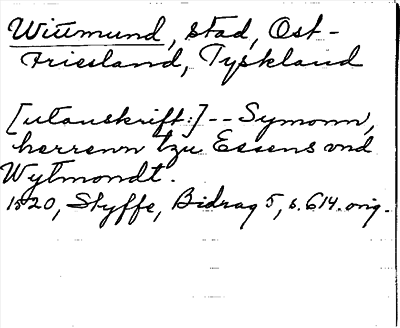 Wittmund, stad, Ost-
Friesland, Tyskland
[utanskrift:] -- Symonn,
herrenn tzu Essens vnd
Wytmondt.
1520, Styffe, Bidrag 5, s. 614. orig.